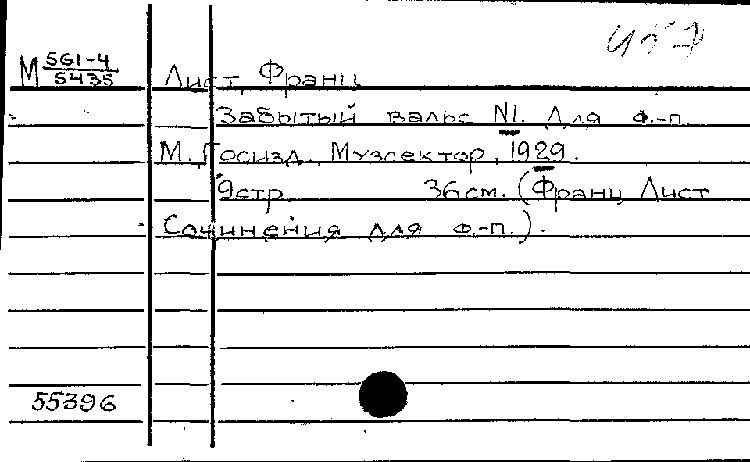 М 561-4/5435
Лист, Франц
Забытый вальс N1. Для ф.-п.
М., Госизд. Музсектор, 1929.
9стр. 36см. (Франц Лист
Сочинения для ф.-п.).
55396